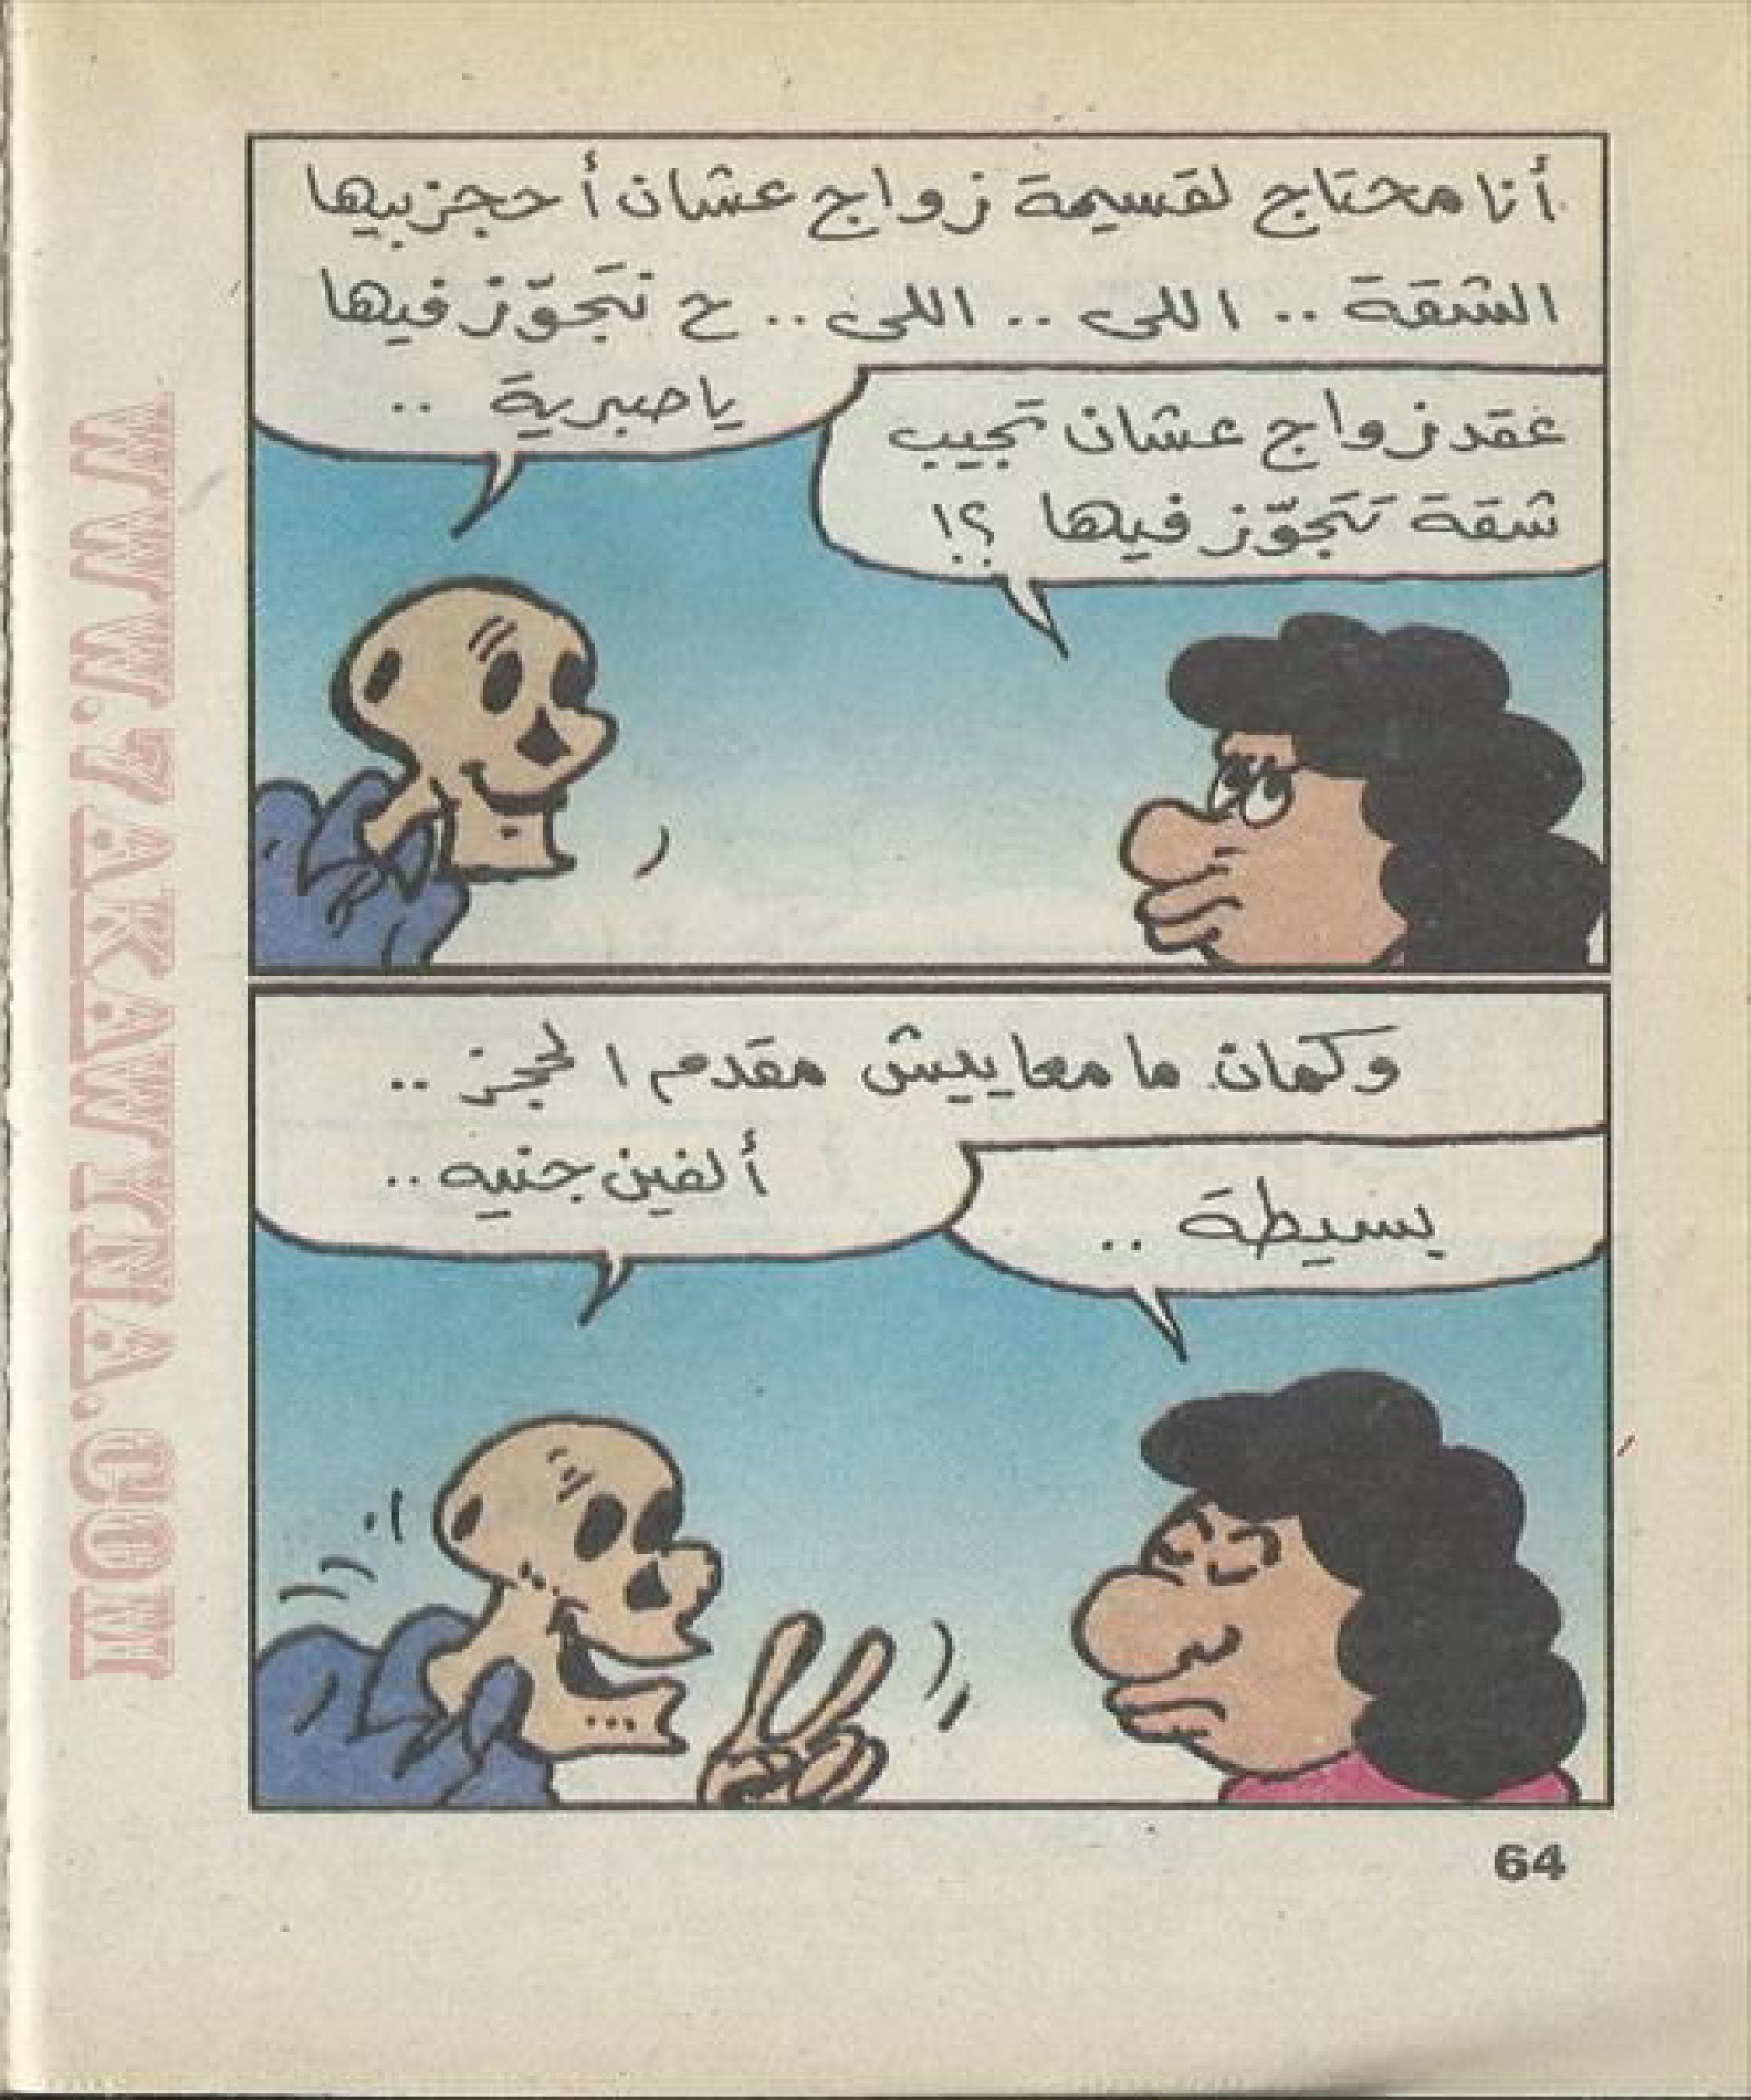 أنا محتاج لقسيمة زواج عشان أحجز بيها
الشقة .. اللى .. اللى .. ح نتجوّز فيها
يا صبرية ..
عقد زواج عشان تجيب
شقة تتجوّز فيها ؟!
وكمان ما معاييش مقدم الحجز ..
ألفين جنيه ..
بسيطة ..
64
WWW.7AKAWYNA.COM